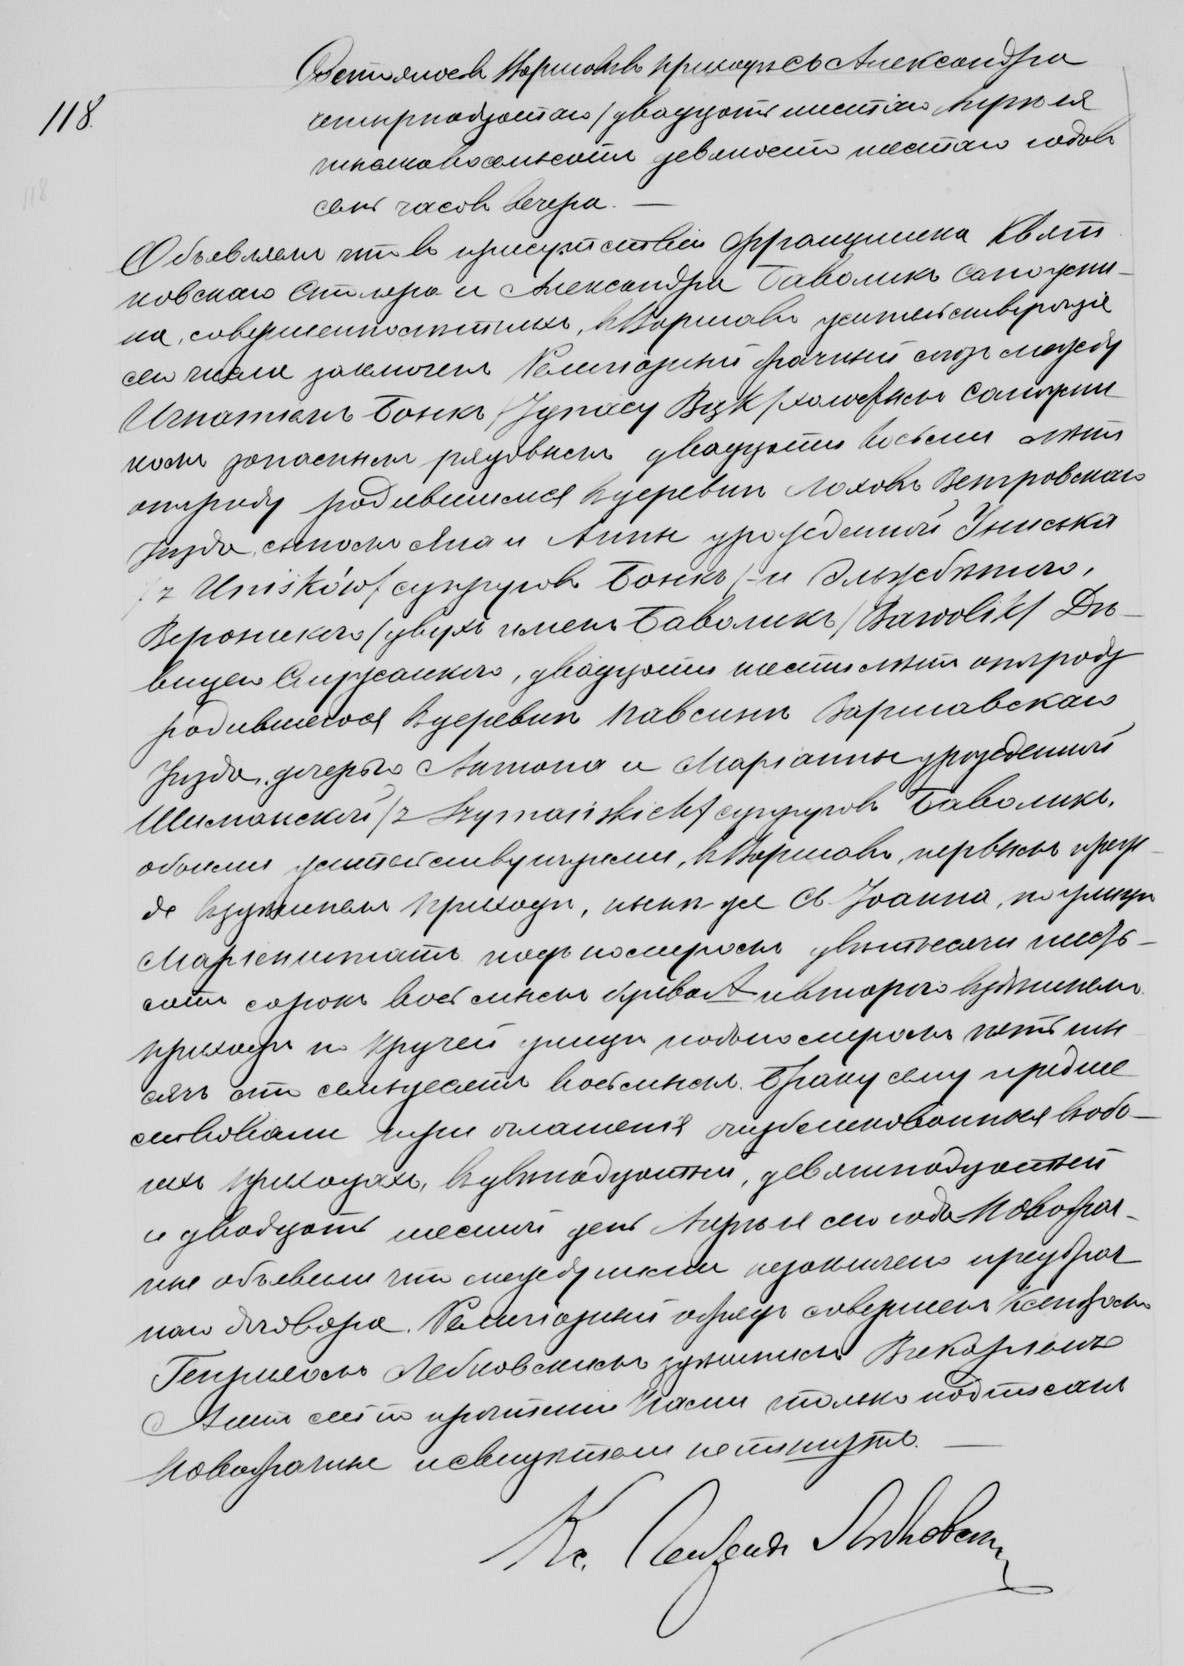 118.
Состоялось в Варшаве в приходе Св Александра
четырнадцатаго /двадцать шестаго Апреля
тысяча восемьсот девяносто шестаго года в
семь часов вечера. —
Объявляем что в присутствии Францишка Квят
ковскаго столяра и Александра Баволик сапожни-
ка, совершеннолетних, в Варшаве жительствующих
сего числа заключен Религиозный брачный союз между
Игнатием Бонк /Ignacy Bąk/ холостым сапожни
ком запасным рядовым двадцати восьми лет
отроду родившимся в деревне Лохов Венгровскаго
Уезда, сыном Яна и Анны урожденной Униська
/z Uniśków/ супругов Бонк /- и Эльжбетою,
Вероникою /двух имен Баволик /Bawolik/ Де-
вицею служанкою, двадцати шести лет отроду
родившеюся в деревне Павсин Варшавскаго
Уезда, дочерью Антона и Марианны урожденной
Шиманской /z Szymańskich/ супругов Баволик.
обоими жительствующими, в Варшаве, первым преж-
де в здешнем приходе, ныне же Св. Иоанна, по улице
Мариенштат под номером две тысячи шесть-
сот сорок восьмым буква А и второю в здешнем
приходе по Кручей улице под номером пять ты
сяч сто семьдесят восьмым. Браку сему предше
ствовали три оглашения опубликованныя в обо-
их приходах, в двенадцатый, девятнадцатый
и двадцать шестый день Апреля сего года Новобрач-
ные объявили что между ними не заключено предбрач
наго договора. Религиозный обряд совершен Ксендзом
Генриком Лебковским здешним Викарием
Акт сей по прочтении Нами только подписан
Новобрачные и свидетели не пишут. —
Кс.